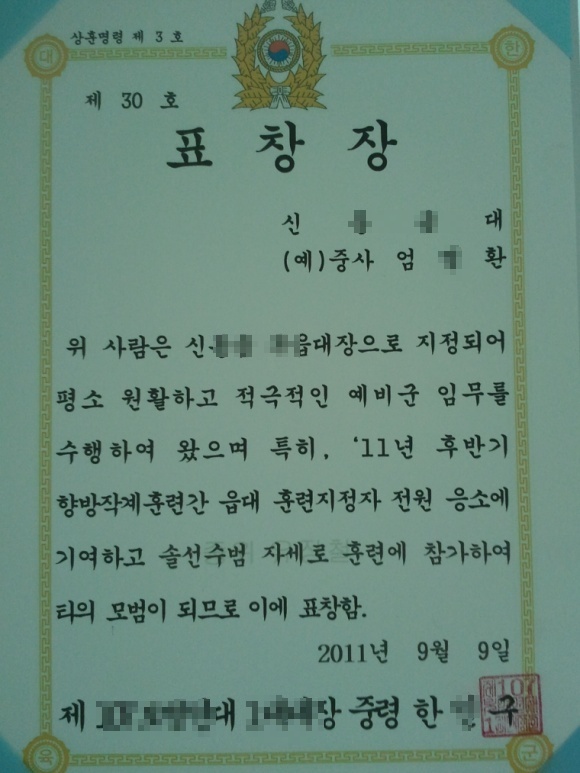 상훈명령 제 3 호
대 한
제 30 호
표 창 장
신 대
(예)중사 엄 환
위 사람은 신 읍대장으로 지정되어
평소 원활하고 적극적인 예비군 임무를
수행하여 왔으며 특히, '11년 후반기
향방작계훈련간 읍대 훈련지정자 전원 응소에
기여하고 솔선수범 자세로 훈련에 참가하여
타의 모범이 되므로 이에 표창함.
2011년 9월 9일
제 대 장 중령 한 구
107
육 군